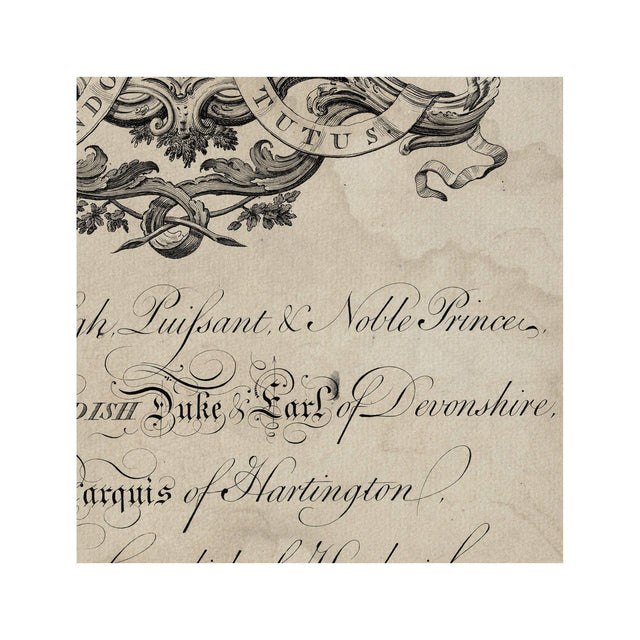 NDO TUTUS
gh, Puiſsant, & Noble Prince,
DISH Duke & Earl of Devonshire,
arquis of Hartington,